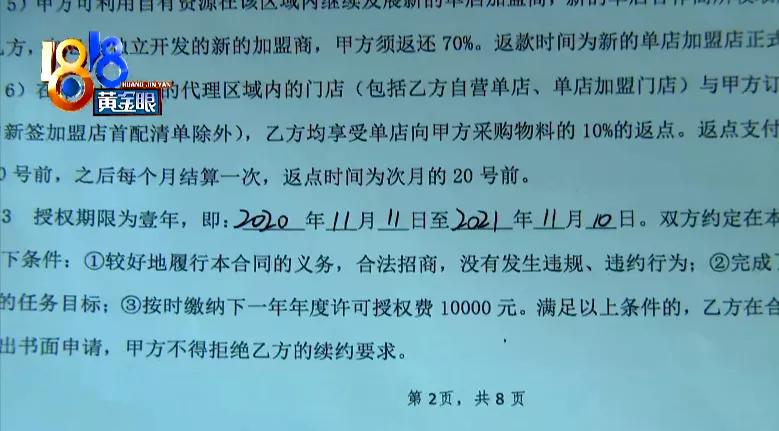 5）甲方可利用自有资源在该区域内继续发展新的单店加盟商，新的单店合作商所收取
方，独立开发的新的加盟商，甲方须返还 70%。返款时间为新的单店加盟店正式
1818
HUANG JIN YAN
黄金眼
6）在的代理区域内的门店（包括乙方自营单店、单店加盟门店）与甲方订
新签加盟店首配清单除外），乙方均享受单店向甲方采购物料的 10%的返点。返点支付
0 号前，之后每个月结算一次，返点时间为次月的 20 号前。
3 授权期限为壹年，即：2020 年 11 月 11 日至 2021 年 11 月 10 日。双方约定在本
下条件：①较好地履行本合同的义务，合法招商，没有发生违规、违约行为；②完成了
的任务目标；③按时缴纳下一年年度许可授权费 10000 元。满足以上条件的，乙方在合
出书面申请，甲方不得拒绝乙方的续约要求。
第 2页，共 8 页